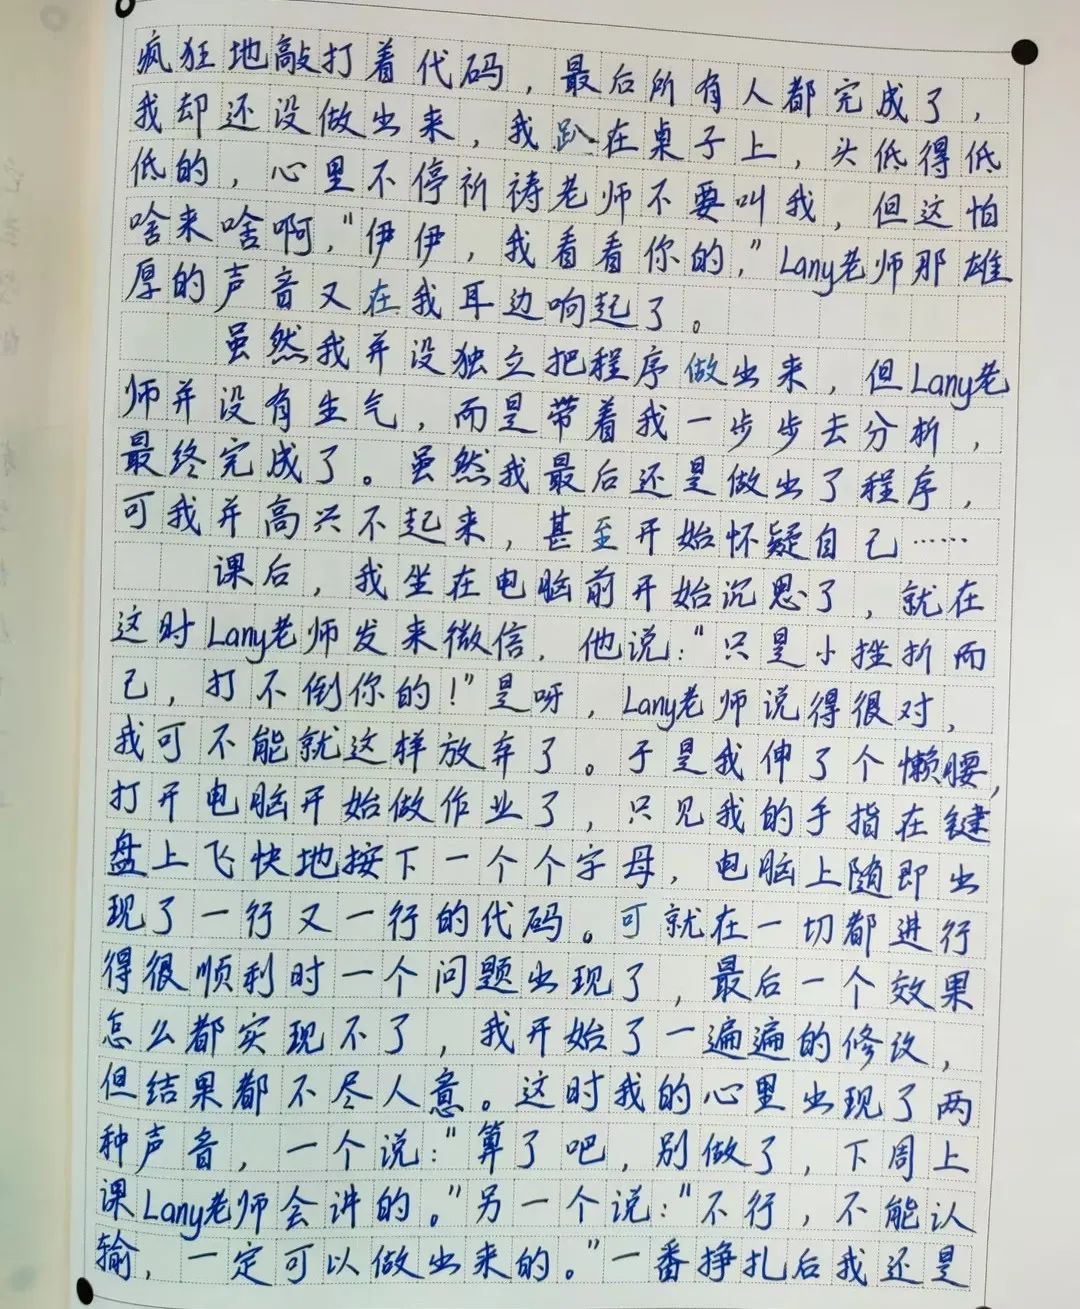 疯狂地敲打着代码，最后所有人都完成了，
我却还没做出来，我趴在桌子上，头低得低
低的，心里不停祈祷老师不要叫我，但这怕
啥来啥啊，"伊伊，我看看你的，"Lany老师那雄
厚的声音又在我耳边响起了。
虽然我并没独立把程序做出来，但Lany老
师并没有生气，而是带着我一步步去分析，
最终完成了。虽然我最后还是做出了程序，
可我并高兴不起来，甚至开始怀疑自己……
课后，我坐在电脑前开始沉思了，就在
这时Lany老师发来微信，他说："只是小挫折而
已，打不倒你的！"是呀，Lany老师说得很对，
我可不能就这样放弃了。于是我伸了个懒腰，
打开电脑开始做作业了，只见我的手指在键
盘上飞快地按下一个个字母，电脑上随即出
现了一行又一行的代码。可就在一切都进行
得很顺利时一个问题出现了，最后一个效果
怎么都实现不了，我开始了一遍遍的修改，
但结果都不尽人意。这时我的心里出现了两
种声音，一个说："算了吧，别做了，下周上
课Lany老师会讲的。"另一个说："不行，不能认
输，一定可以做出来的。"一番挣扎后我还是